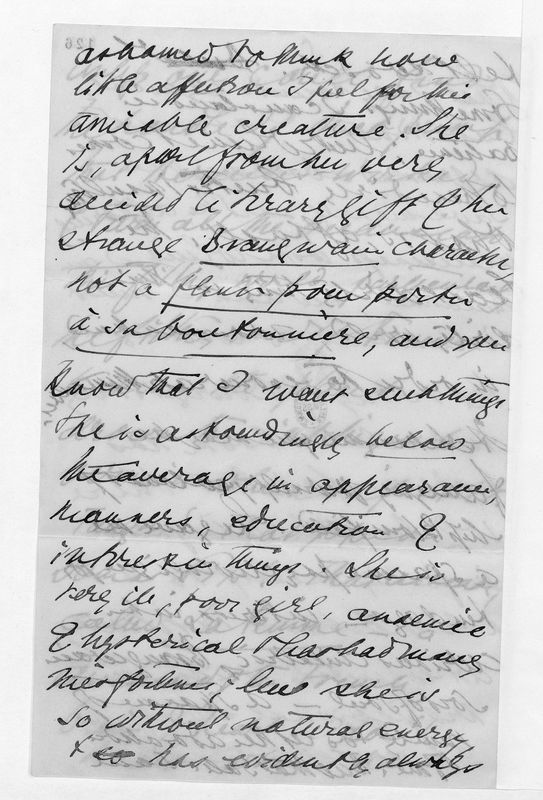 126
ashamed to think how
little affection I feel for this
amiable creature. She
is, apart from her very
decided literary gift & her
strange Brangwain character,
not a fleur pour porter
à sa boutonnière, and you
know that I want such things
She is astoundingly below
the average in appearance,
manners, education &
interest in things. She is
very ill, poor girl, anaemic
& hysterical & has had many
misfortunes; but she is
so without natural energy
& so has evidently always